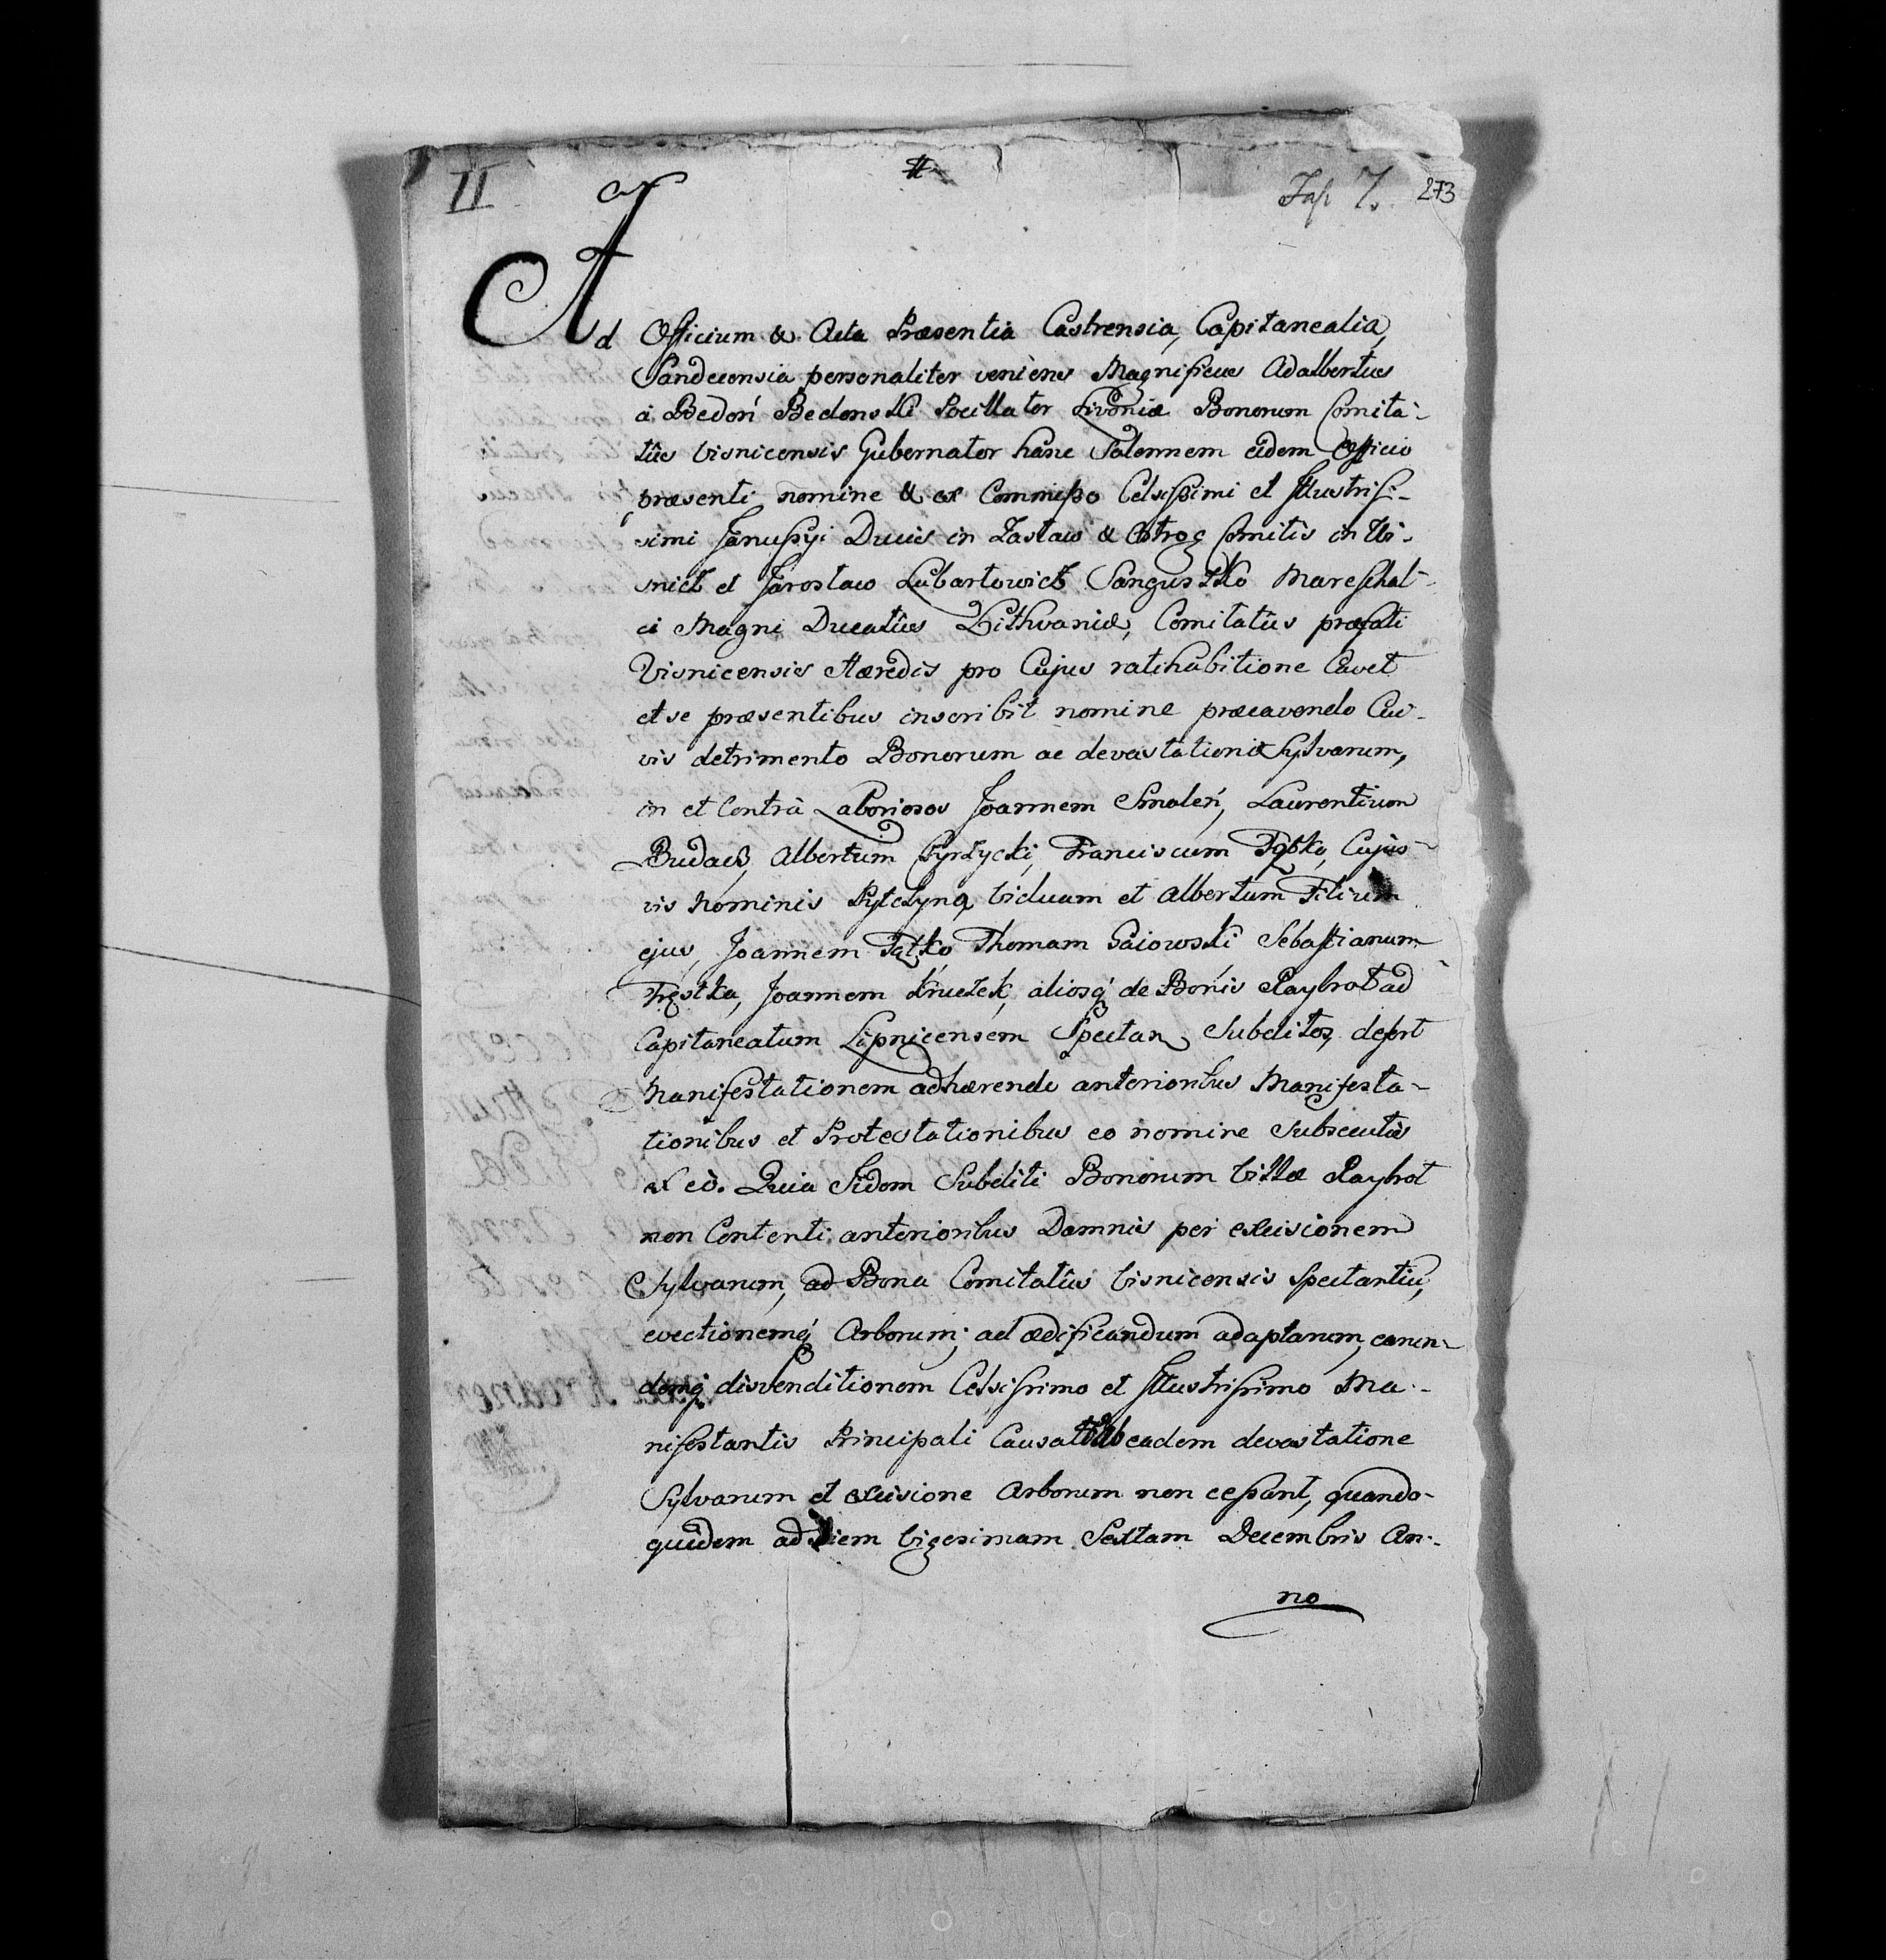 II # 273
Ad Officium & Acta Præsentia Castrensia, Capitanealia,
Sandecensia personaliter veniens Magnificus Adalbertus
à Bedoń Bedonski Pocillator Livoniæ Bonorum Comita-
tûs Visnicensis Gubernator hanc Solennem eidem Officio
præsenti nomine & ex Commisso Celsissimi et Illustrissi-
simi Janussÿi Ducis in Zasław & Ostrog Comitis in Wi-
snicz et Jarosław Lubartowicz Sanguszko Mareschal-
ci Magni Ducatûs Lithvaniæ, Comitatûs præfati
Visnicensis Hæredis pro Cujus ratihabitione Cavet
et se præsentibus inscribit nomine præcavendo Cui-
vis detrimento Bonorum ac devastationi Sylvarum,
in et Contrà Laboriosos Joannem Smoleń, Laurentium
Budacz, Albertum Pyrzycki, Franciscum Cujus-
vis Nominis Pytlyną Viduam et Albertum Filium
ejus, Joannem Thomam Gaiowski Sebastianum
Joannem aliosq́ de Bonis Raybrot ad
Capitaneatum Lipnicensem Spectan, Subditos, defert
Manifestationem adhærendo anterioribus Manifesta-
tionibus et Protestationibus eo nomine Subsecutis
ex eò. Quia Iidem Subditi Bonorum Villæ Raybrot
non Contenti anterioribus Damnis per excisionem
Sylvarum, ad Bona Comitatûs Visnicensis Spectantiu,
evectionemq́ Arborum, ad ædificandum adaptarum, earun-
demq́ disvenditionem Celsissimo et Illustrissimo Ma-
nifestantis Principali Causatis ab eadem devastatione
Sylvarum et excisione Arborum non cessant, quando-
quidem ad diem Vigesimam Sextam Decembris An-
no